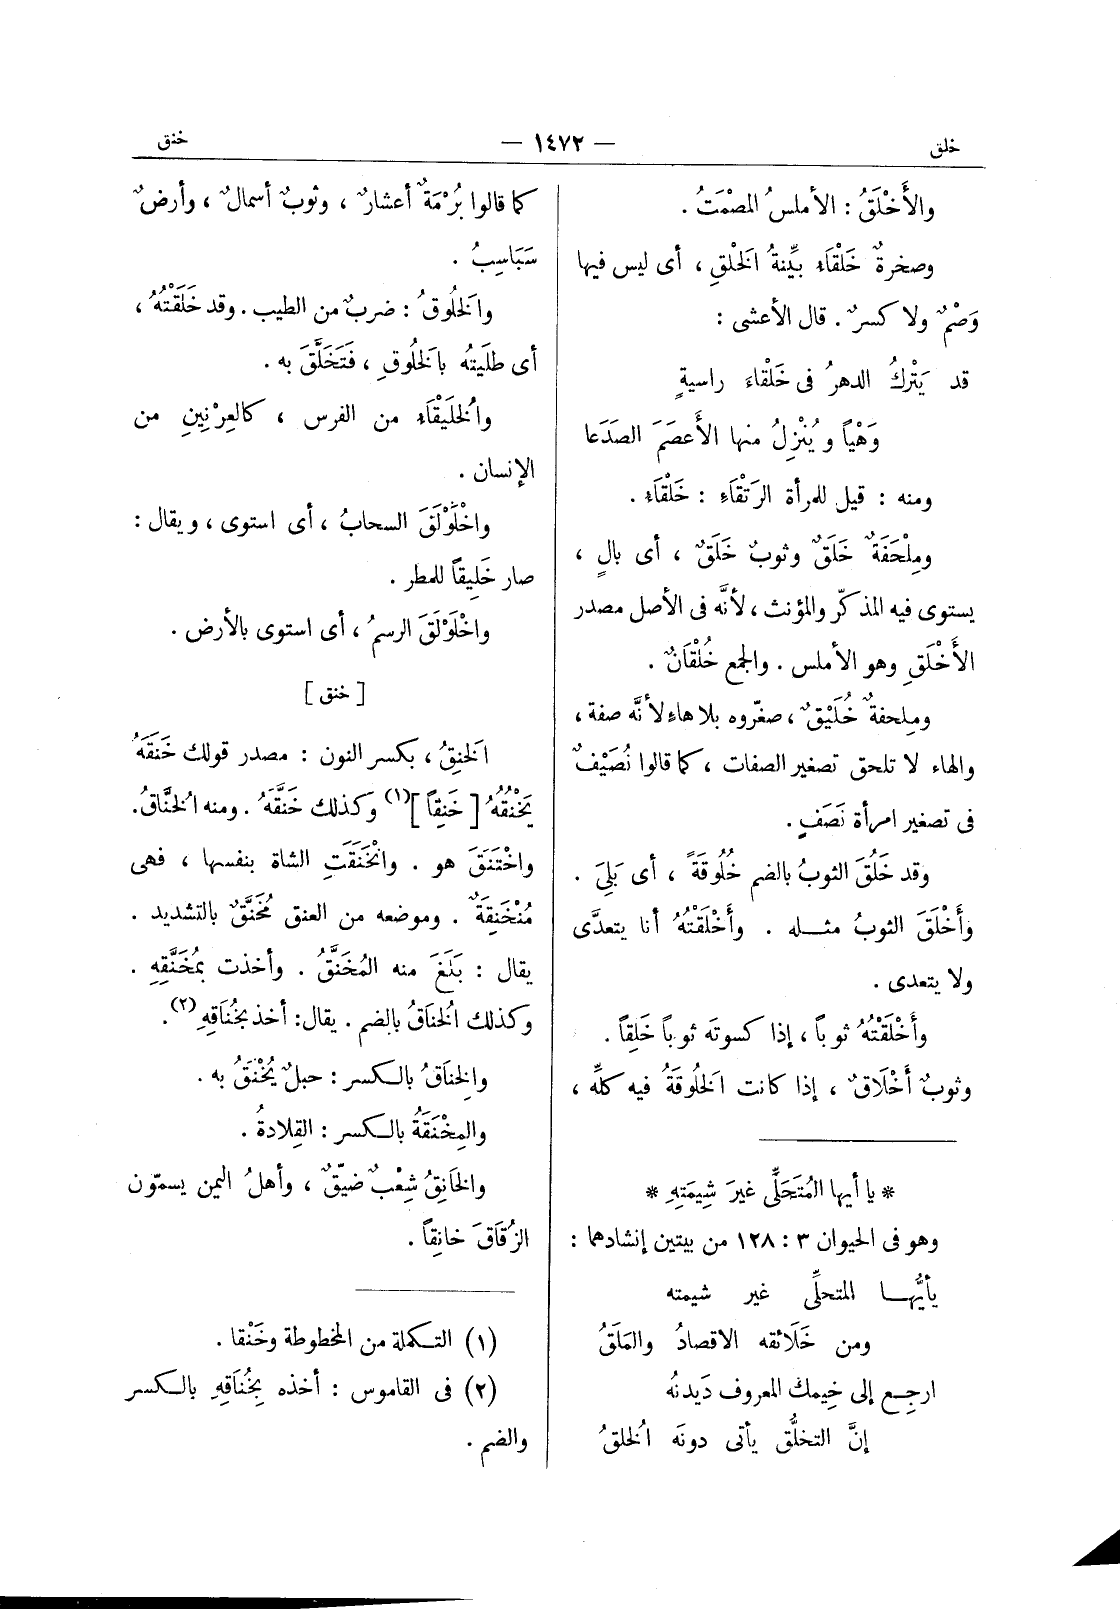 خلق
— ١٤٧٢ —
خنق
والأَخْلَقُ : الأملسُ المصْمَتُ .
وصخرةٌ خَلْقَاء بيِّنةُ الخَلْقِ ، أى ليس فيها
وَصْمٌ ولا كسرٌ . قال الأعشى :
قد يَتْركُ الدهرُ فى خَلْقاءَ راسيةٍ
وَهْياً ويُنْزِلُ منها الأَعصَمَ الصدَعا
ومنه : قيل للمرأة الرَتْقَاءِ : خَلْقَاء .
ومِلْحَفَةٌ خَلَقٌ وثوبٌ خَلَقٌ ، أى بالٍ ،
يستوى فيه المذكّر والمؤنث ، لأنَّه فى الأصل مصدر
الأَخْلَقِ وهو الأملس . والجمع خُلْقَانٌ .
ومِلحفةٌ خُلَيْقٌ ، صغّروه بلا هاء لأنَّه صفة ،
والهاء لا تلحق تصغير الصفات ، كما قالوا نُصَيْفٌ
فى تصغير امرأة نَصَفٍ .
وقد خَلُقَ الثوبُ بالضم خُلُوقَةً ، أى بَلِىَ .
وأَخْلَقَ الثوبُ مثـله . وأَخْلَقْتُهُ أنا يتعدَّى
ولا يتعدى .
وأَخْلَقْتُهُ ثوباً ، إذا كسوتَه ثوباً خَلِقاً .
وثوبٌ أَخْلَاقٌ ، إذا كانت الخُلُوقَةُ فيه كلِّه ،
* يا أيها المُتَحَلِّى غيرَ شِيمَتِهِ *
وهو فى الحيوان ٣ : ١٢٨ من بيتين إنشادهما :
يأيُّهـا المتحلِّى غير شيمته
ومن خَلَائقه الاقصادُ والمَلَقُ
ارجِـع إلى خِيمك المعروف دَيدنُه
إنَّ التخلُّق يأتى دونَه الخلقُ
كما قالوا بُرْمَةٌ أعشارٌ ، وثوبٌ أسمالٌ ، وأرضٌ
سَبَاسِبُ .
والخَلُوقُ : ضربٌ من الطيب . وقد خَلَقْتُهُ ،
أى طلَيتُه بالخَلُوقِ ، فَتَخَلَّقَ به .
والخُلَيْقَاء من الفرس ، كالعِرْنِينِ من
الإنسان .
واخْلَوْلَقَ السحابُ ، أى استوى ، ويقال :
صار خَلِيقاً للمطر .
واخْلَوْلَقَ الرسمُ ، أى استوى بالأرض .
[ خنق ]
الخَنِقُ ، بكسر النون : مصدر قولك خَنَقَهُ
يَخْنُقُهُ [ خَنِقاً ](١) وكذلك خَنَّقَهُ . ومنه الخُنَّاقُ .
واخْتَنَقَ هو . وانْخَنَقَتِ الشاة بنفسها ، فهى
مُنْخَنِقَةٌ . وموضعه من العنق مُخَنَّقٌ بالتشديد .
يقال : بَلَغَ منه المُخَنَّقُ . وأخذت بمُخَنَّقِهِ .
وكذلك الخُنَاقُ بالضم . يقال : أخذ بخُنَاقِهِ(٢) .
والخِنَاقُ بالكسر : حبلٌ يُخْنَقُ به .
والمِخْنَقَةُ بالكسر : القِلادةُ .
والخَانِقُ شِعْبٌ ضيّقٌ ، وأهلُ اليمن يسمّون
الزُقَاقَ خانِقاً .
(١) التكملة من المخطوطة وخَنْقا .
(٢) فى القاموس : أخذه بِخُنَاقِهِ بالكسر
والضم .